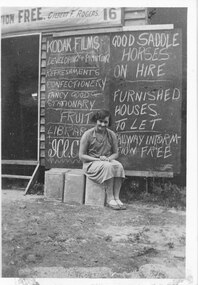 TION FREE. GILBERT F. ROGERS. 16
KODAK FILMS
DEVELOPING & PRINTING
REFRESHMENTS
CONFECTIONERY
FANCY GOODS
STATIONARY
FRUIT
LIBRARY
ICE
GOOD SADDLE
HORSES
ON HIRE
FURNISHED
HOUSES
TO LET
RAILWAY INFORM-
TION FREE